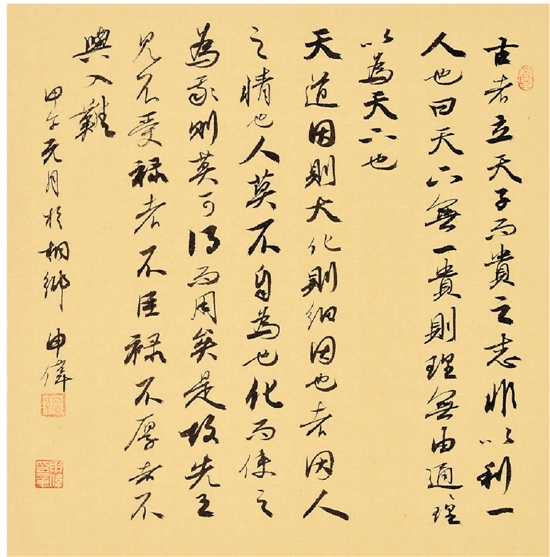 古者立天子而貴之志非以利一
人也曰天下無一貴則理無由通理
以為天下也
天道因則大化則細因也者因人
之情也人莫不自為也化而使之
為我則莫可得而用矣是故先王
見不受禄者不臣禄不厚者不
與入難
甲午元月於桐鄉申偉